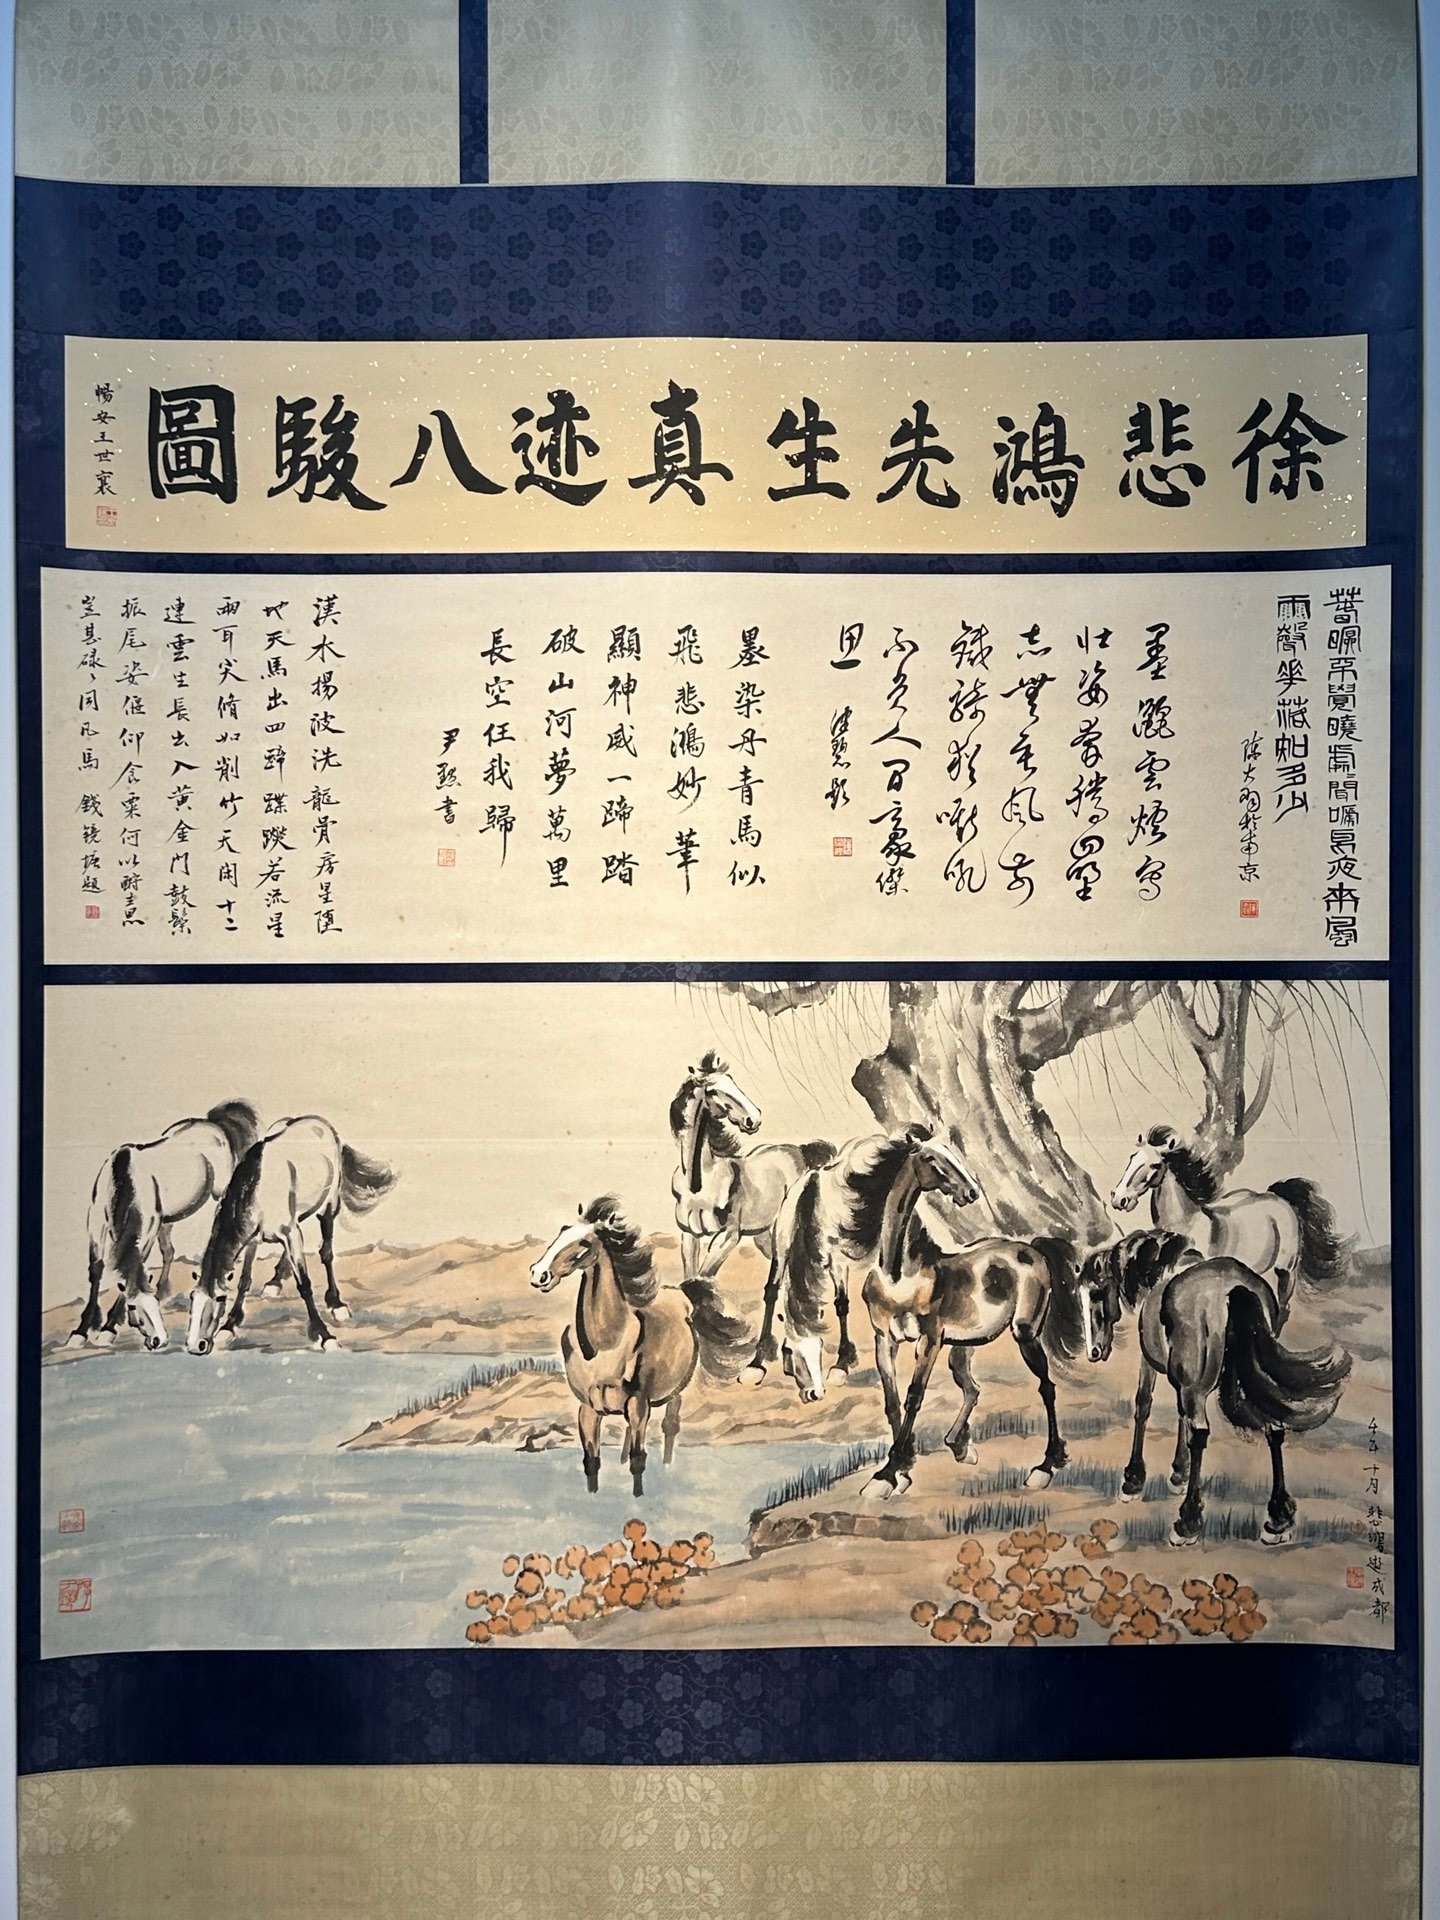 徐悲鴻先生真迹八駿圖
暢安王世襄
春眠不覺曉處聞啼鳥夜來風
雨聲花落知多少
陈大羽於南京
墨灑雲煙寫
壯姿奔騰四野
志無垂風前
鐵骑猶嘶吼
不負人間豪傑
思
墨染丹青馬似
飛悲鴻妙筆
顯神威一蹄踏
破山河夢萬里
長空任我歸
尹默書
漢水揚波洗龍骨房星墮
地天馬出四蹄蹀躞若流星
兩耳尖脩如削竹天閑十二
連雲生長出入黄金門鼓鬃
振尾姿偃仰食粟何以酧主恩
豈甚碌々同凡馬 錢镜塘題
壬午十月悲鴻遊成都